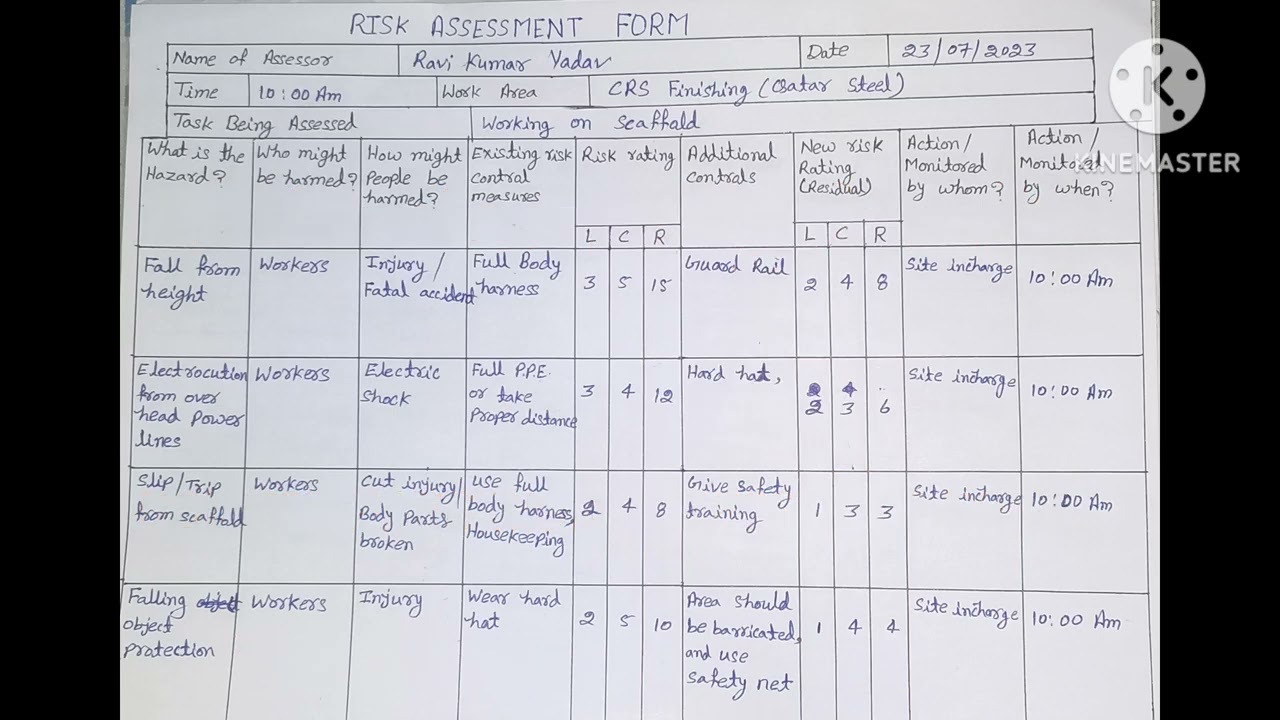 RISK ASSESSMENT FORM
Name of Assessor Ravi Kumar Yadav Date 23/07/2023
Time 10:00 Am Work Area CRS Finishing (Qatar Steel)
Task Being Assessed Working on Scaffald
What is the Hazard?
Who might be harmed?
How might People be harmed?
Existing risk contral measures
Risk rating
Additional contrals
New risk Rating (Residual)
Action/ Monitored by whom?
Action/ Monitored by when?
KINEMASTER
L C R L C R
Fall from height
Workers
Injury / Fatal accident
Full Body harness
3 5 15
Guard Rail
2 4 8
Site incharge
10:00 Am
Electrocution from over head power lines
Workers
Electric shock
Full P.P.E. or take Proper distance
3 4 12
Hard hat,
2 3 6
Site incharge
10:00 Am
Slip/Trip from scaffald
Workers
Cut injury/ Body Parts broken
Use full body harness, Housekeeping
2 4 8
Give Safety training
1 3 3
Site incharge
10:00 Am
Falling object protection
Workers
Injury
Wear hard hat
2 5 10
Area should be barricated, and use safety net
1 4 4
Site incharge
10:00 Am